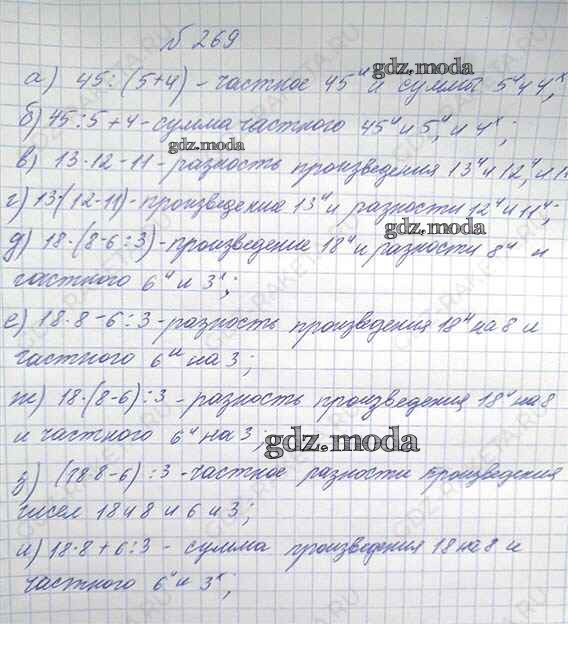 № 269
а) 45:(5+4) - частное 45и и суммы 5и 4х;
б) 45:5+4 - сумма частного 45и и 5и и 4х;
в) 13·12-11 - разность произведения 13и и 12и, и 1
г) 13(12-11) - произведение 13и и разности 12и и 11и;
д) 18·(8-6:3) - произведение 18и и разности 8и и
частного 6и и 3х;
е) 18·8-6:3 - разность произведения 18и на 8 и
частного 6и на 3;
ж) 18·(8-6):3 - разность произведения 18и на 8
и частного 6и на 3;
з) (18 8-6):3 - частное разности произведения
чисел 18 и 8 и 6 и 3;
и) 18·8+6:3 - сумма произведения 18 на 8 и
частного 6и и 3х;
gdz.moda
gdz.moda
gdz.moda
gdz.moda